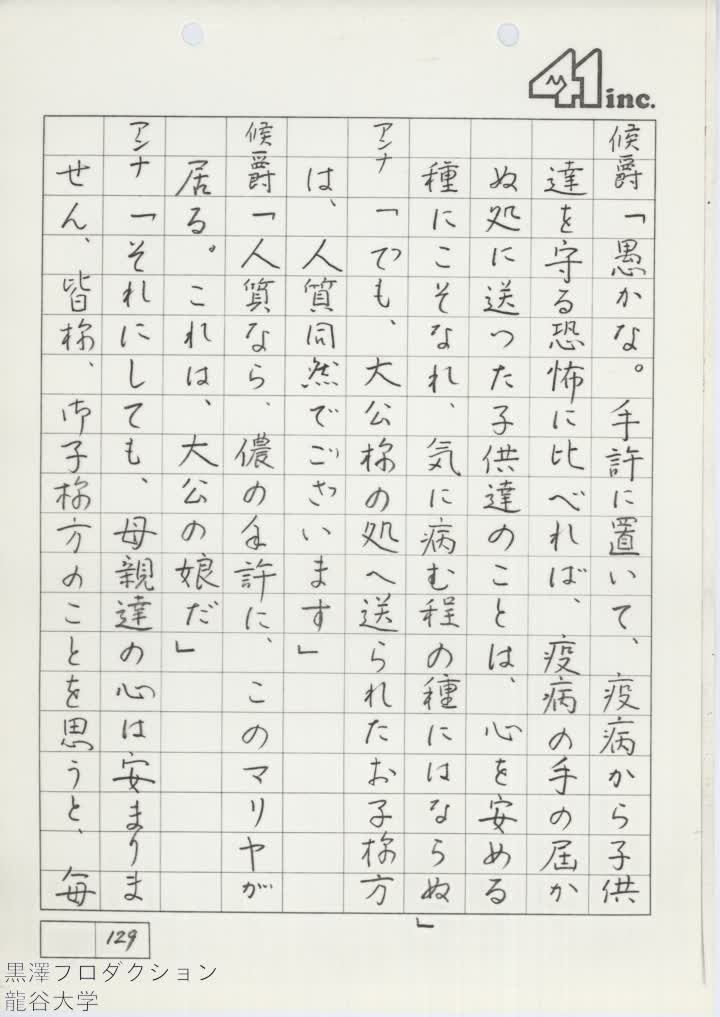 41 inc.
侯爵「愚かな。手許に置いて、疫病から子供
達を守る恐怖に比べれば、疫病の手の届か
ぬ処に送った子供達のことは、心を安める
種にこそなれ、気に病む程の種にはならぬ」
アンナ「でも、大公様の処へ送られたお子様方
は、人質同然でございます」
侯爵「人質なら、儂の手許に、このマリヤが
居る。これは、大公の娘だ」
アンナ「それにしても、母親達の心は安まりま
せん、皆様、御子様方のことを思うと、毎
129
黒澤プロダクション
龍谷大学